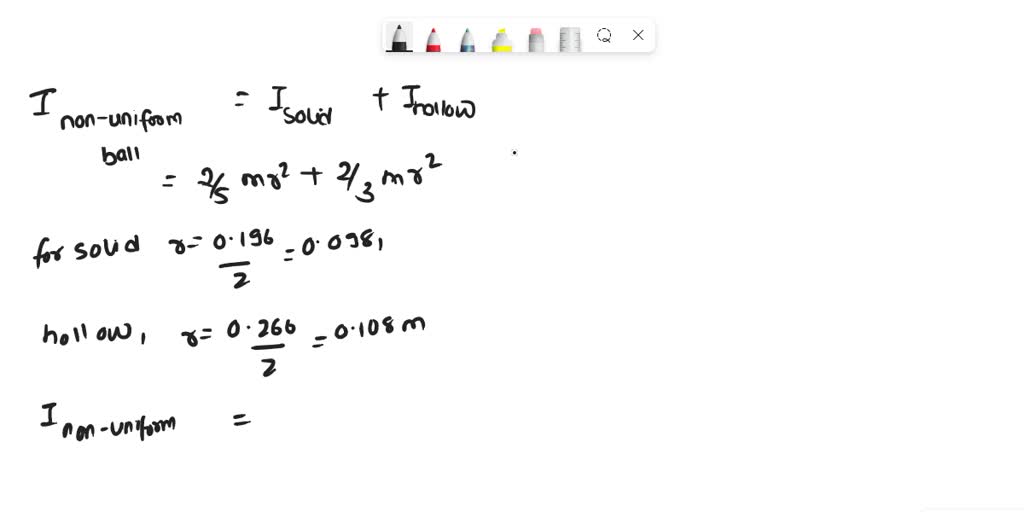 I non-uniform ball = I solid + I hollow
= 2/5 mr² + 2/3 mr²
for solid r= 0.196/2 = 0.098,
hollow, r= 0.266/2 = 0.108 m
I non-uniform =